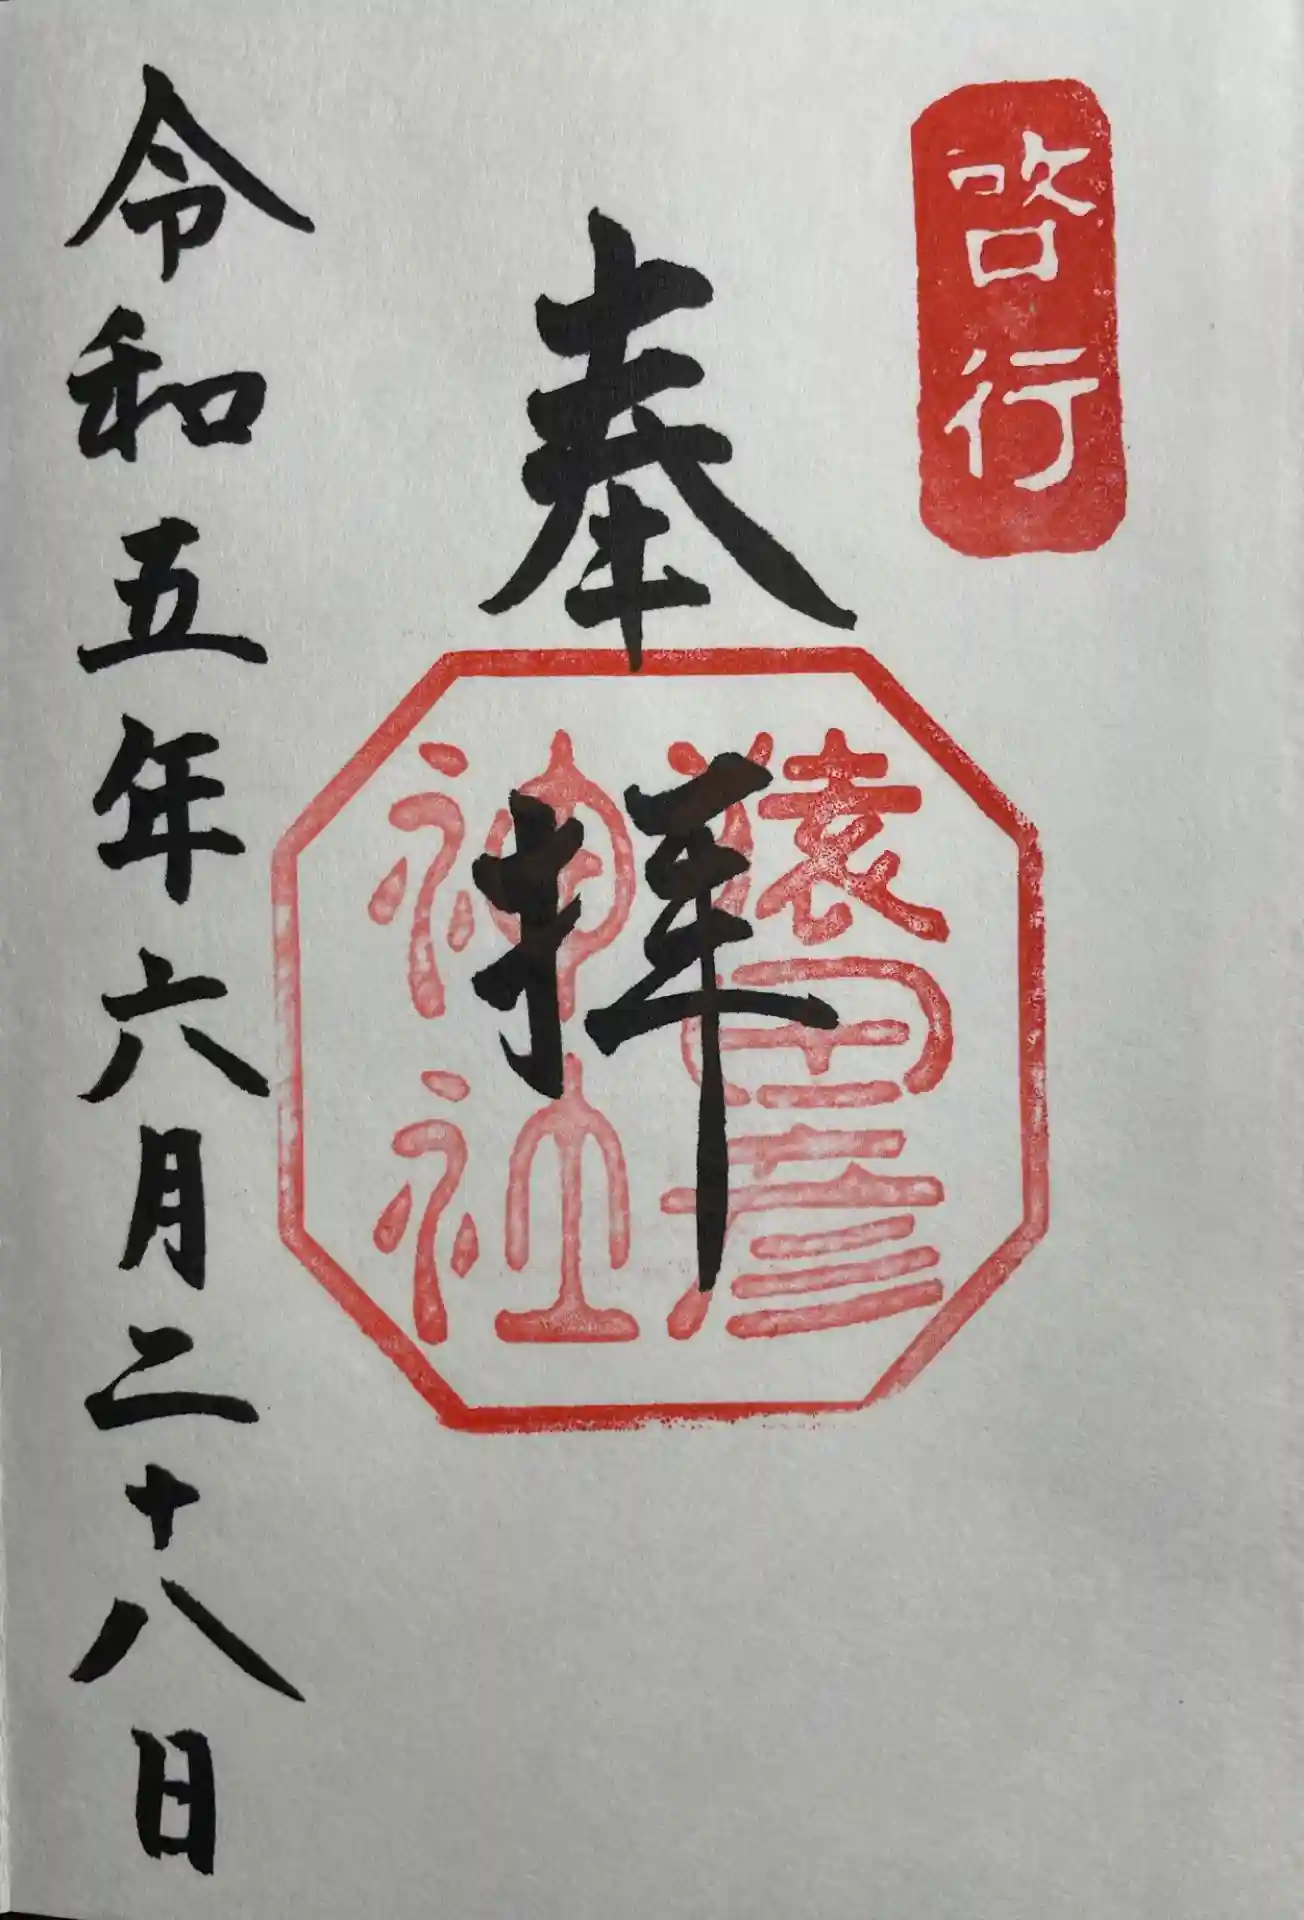 啓行
奉拝
猿田彦
神社
令和五年六月二十八日